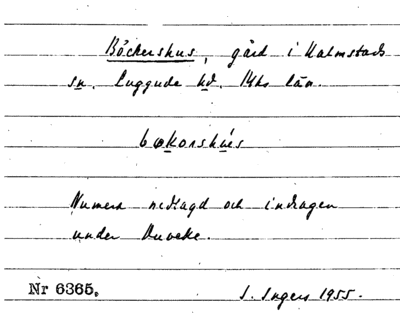 Böckershus, gård i Kalmstads
sn. Luggude hd. Mhs län.
bøkorshúes
Numera nedlagd och indragen
under Duveke.
Nr 6365.
I. Ingers 1955.